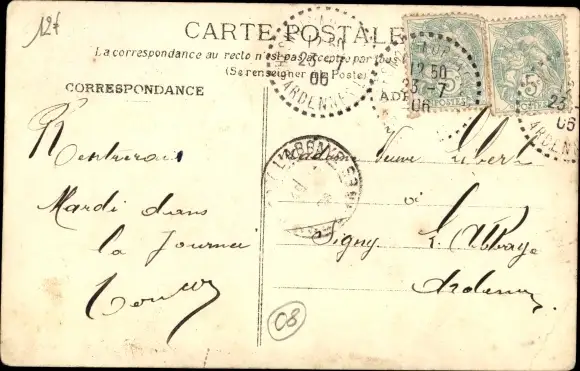 12f
CARTE POSTALE
La correspondance au recto n'est pas acceptée par tous
(Se renseigner à la Poste)
CORRESPONDANCE
12 50
23 - 7
06
ARDENNES
12 50
23 - 7
06
5
POSTES
5
23
06
ARDENNES
L'ABBAYE
Rentrerai
Mardi dans
la Journée
Madame Veuve
à
Signy L. Abbaye
Ardennes
08